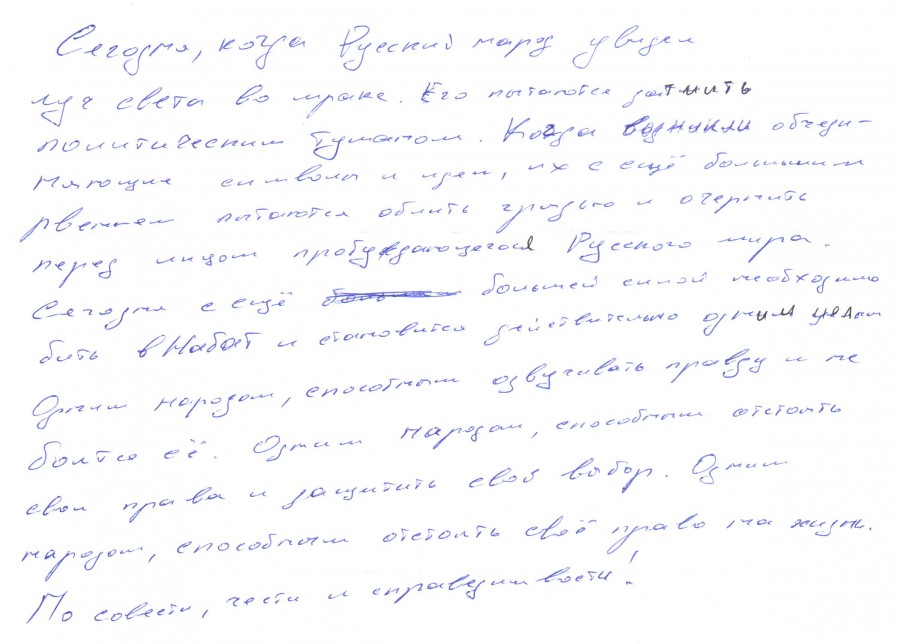 Сегодня, когда Русский народ увидел
луч света во мраке. Его пытаются затмить
политическим туманом. Когда возникли объеди-
няющие символы и идеи, их с ещё большим
рвением пытаются облить грязью и очернить
перед лицом пробуждающегося Русского мира.
Сегодня с ещё большей силой необходимо
бить в Набат и становится действительно одним целым
Одним народом, способным озвучивать правду и не
боятся её. Одним народом, способным отстоять
свои права и защитить свой выбор. Одним
народом, способным отстоять своё право на жизнь.
По совести, чести и справедливости!